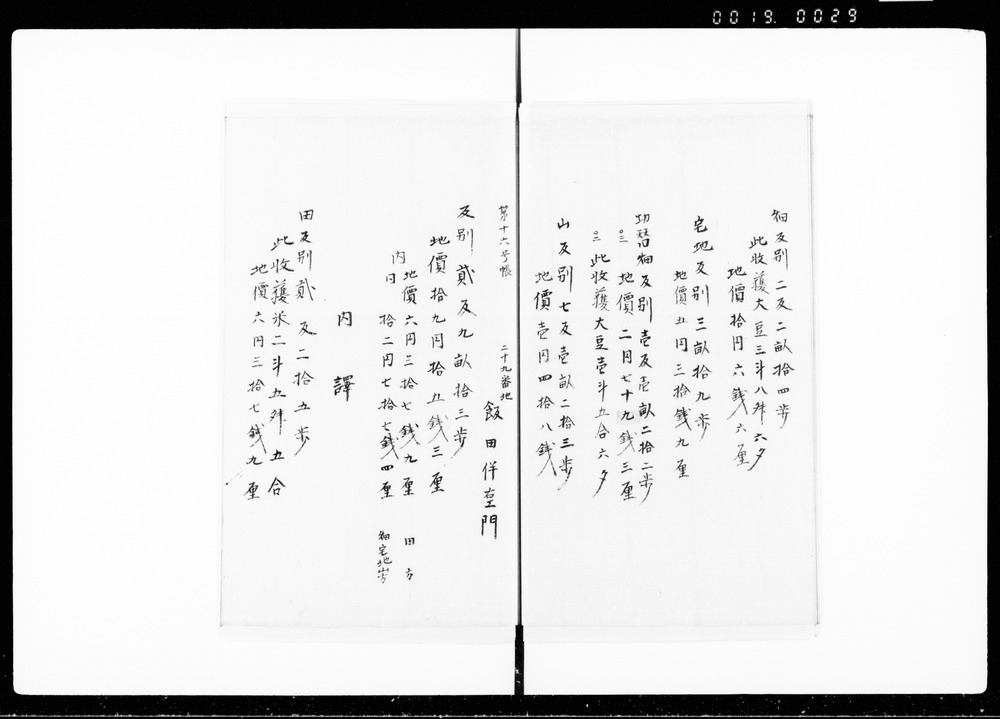 0019.0029
畑反別二反二畝拾四歩
此收獲大豆三斗八舛六夕
地價拾円六錢六厘
宅地反別三畝拾九歩
地價五円三拾錢九厘
切替畑反別壱反壱畝二拾二歩
地價二円七十九錢三厘
此收獲大豆壱斗五合六夕
山反別七反壱畝二拾三歩
地價壱円四拾八錢
第十六号帳
二十九番地
飯田伴左エ門
反別貳反九畝拾三歩
地價拾九円拾五錢三厘
内
地價六円三拾七錢九厘 田方
同拾二円七拾七錢四厘 畑宅地山方
内譯
田反別貳反二拾五歩
此收獲米二斗五舛五合
地價六円三拾七錢九厘